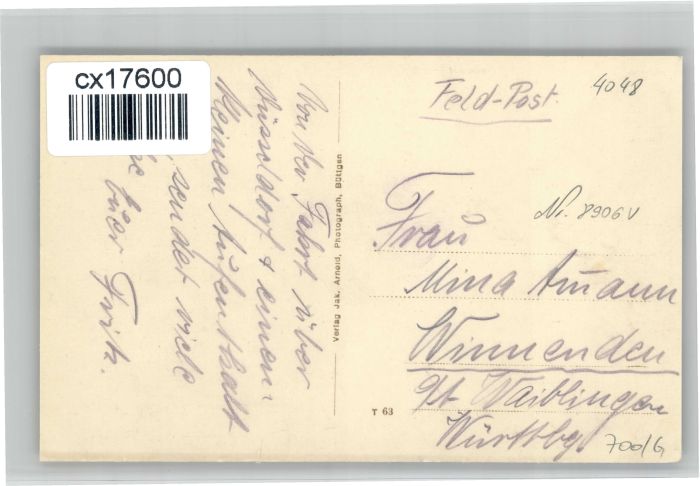 cx17600
Von der Fahrt über
Düsseldorf & einem
kleinen Aufenthalt
sendet viele
Euer Fritz.
Verlag Jak. Arnold, Photograph, Büttgen
T 63
Feld-Post
4048
Nr. 8906 V
Frau
Mina Amann
Winnenden
Waiblingen
Württbg.
700/G